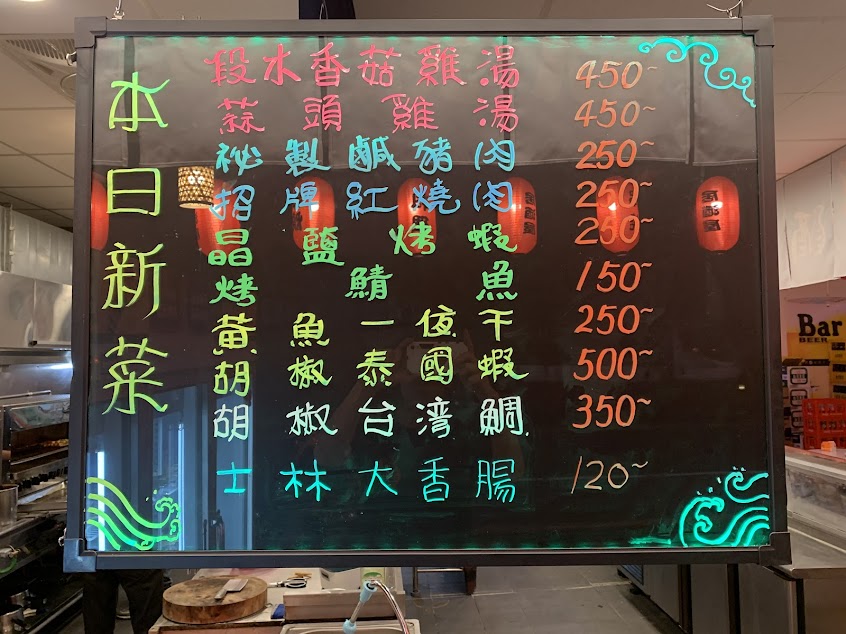 本日新菜
段水香菇雞湯 450~
蒜頭雞湯 450~
祕製鹹豬肉 250~
招牌紅燒肉 250~
晶鹽烤蝦 250~
烤鯖魚 150~
黃魚一夜干 250~
胡椒泰國蝦 500~
胡椒台灣鯛 350~
士林大香腸 120~
Bar
BEER